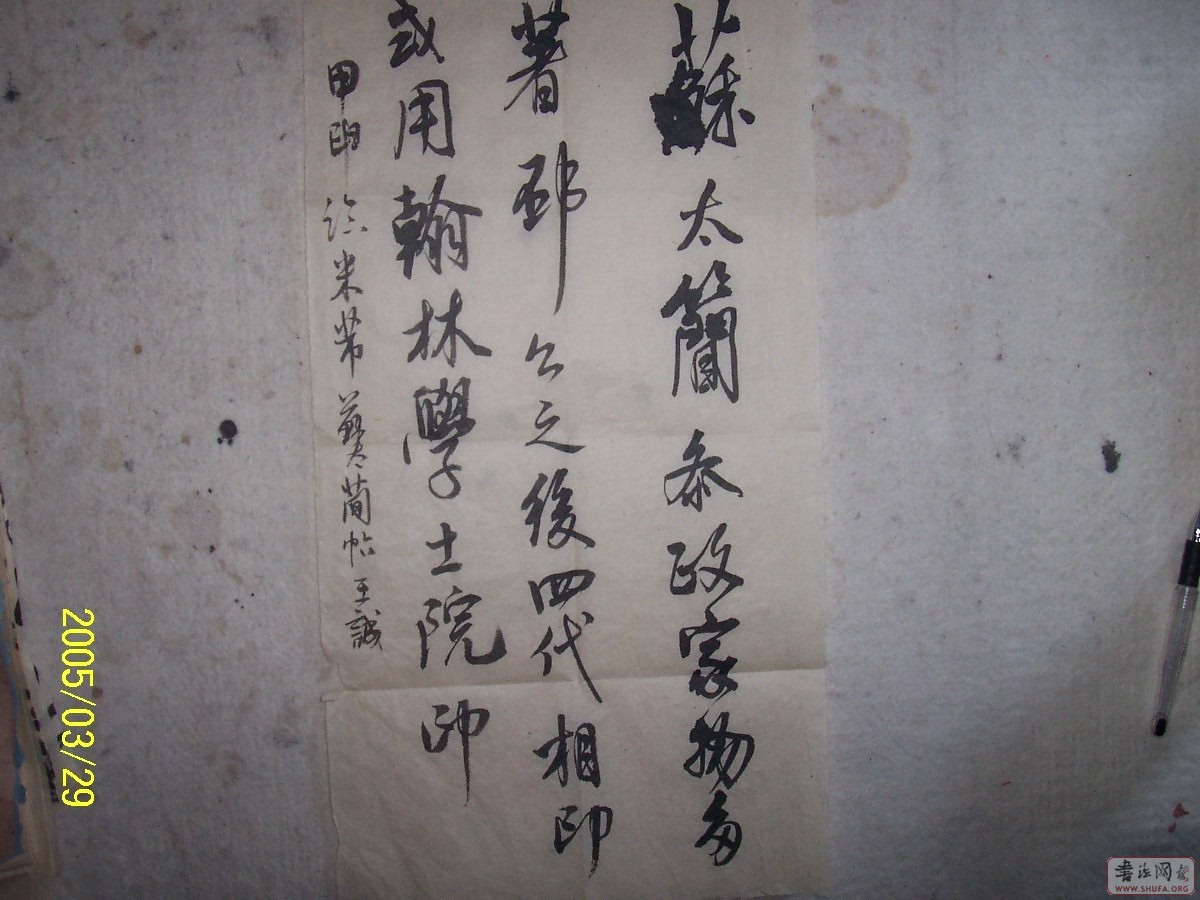 蘇太簡參政家物多
著邳公之後四代相印
或用翰林學士院印
臨米芾蘇太簡帖王誠
2005/03/29
書法网
WWW.SHUFA.ORG